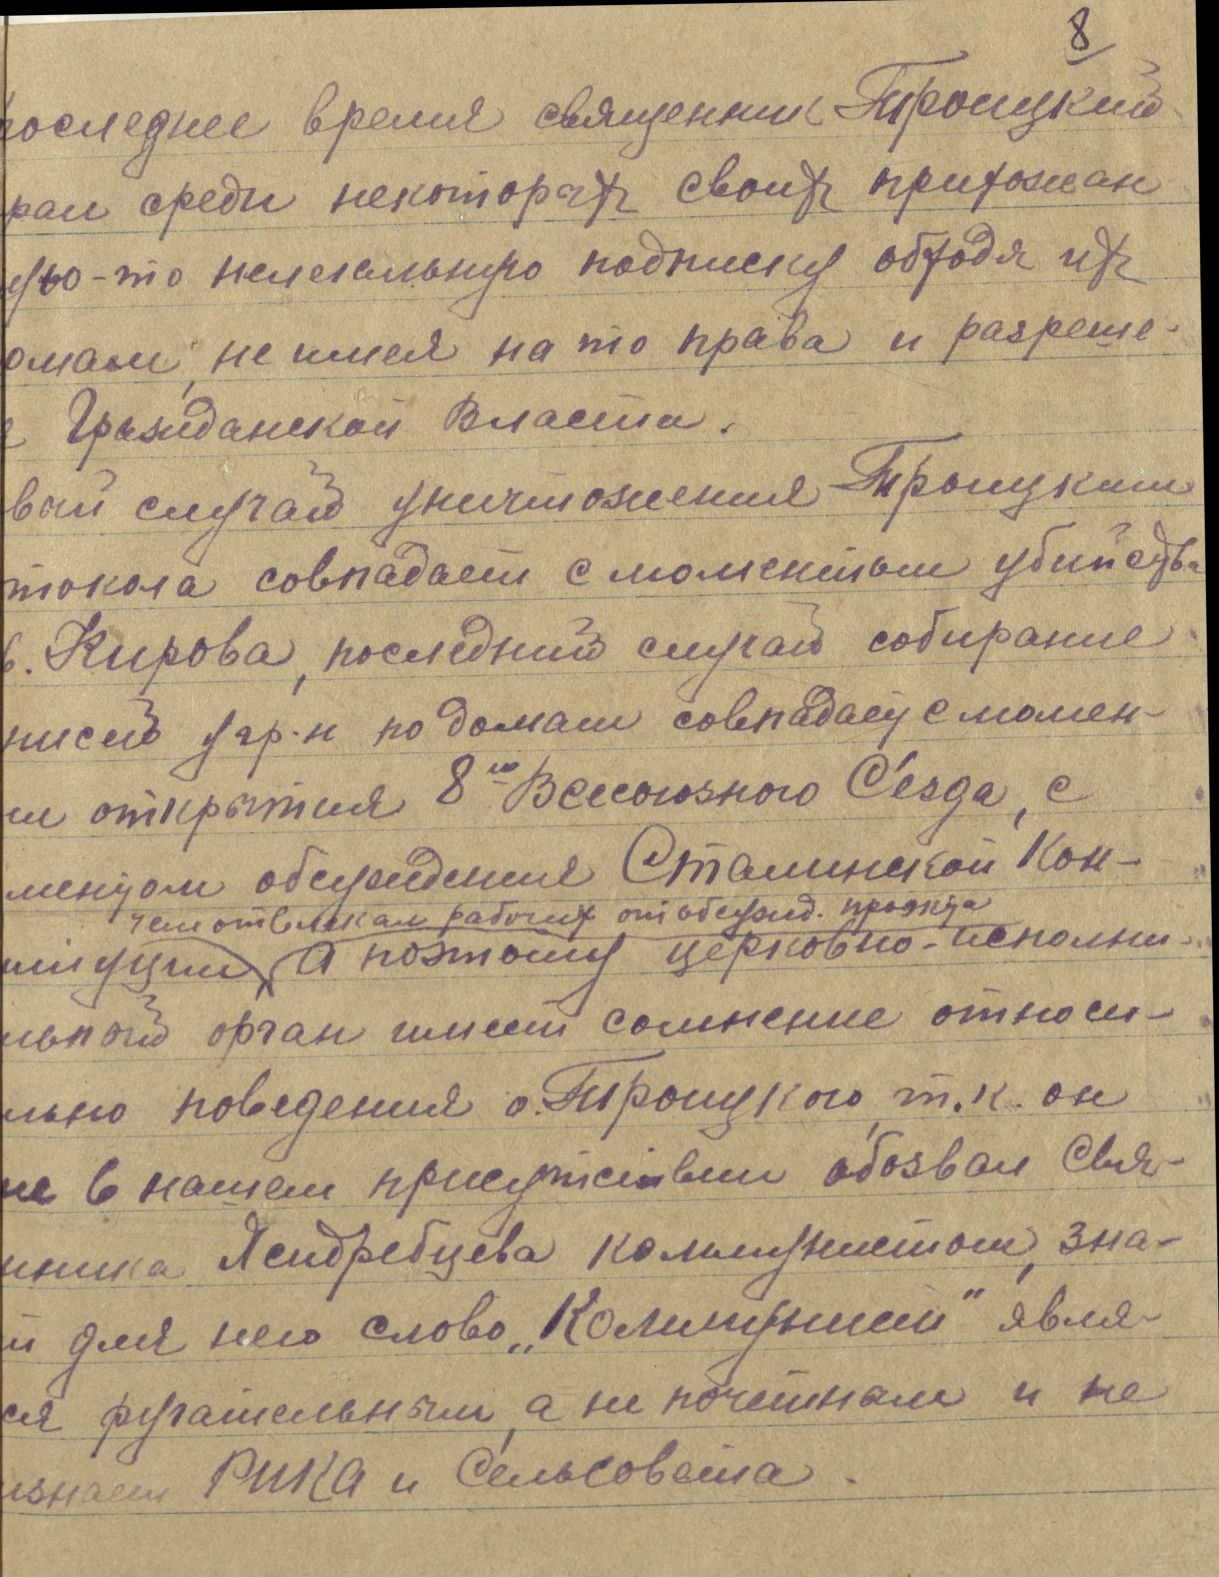 8
последнее время священник Троицкий
рал среди некоторых своих прихожан
ую-то нелегальную подписку обходя их
омам, не имея на то права и разреше-
е Гражданской Власти.
вый случай уничтожения Троицким
токола совпадает с моментом убийства
в. Кирова, последний случай собирание
писей у гр-н по домам совпадает с момен-
м открытия 8го Всесоюзного Сезда, с
ментом обсуждения Сталинской Кон-
чем отвлекал рабочих от обсужд. проэкта
титуции, А поэтому церковно-исполни-
льный орган имеет сомнение относи-
льно поведения о. Троицкого, т.к. он
не в нашем присутствии обозвал Свя-
нника Ясидребцева коммунистом, зна-
т для него слово „Коммунист" явля-
ся ругательным, а не почетным и не
изнает РИКа и Сельсовета.